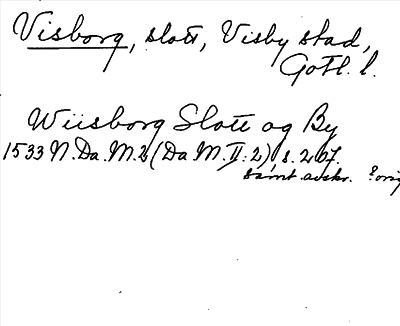 Visborg, slott, Visby stad,
Gotl. l.
Wiisborg Slott og By
1533 N. Da. M. 2 (Da M. II: 2), s. 267.
samt avskr. ? orig